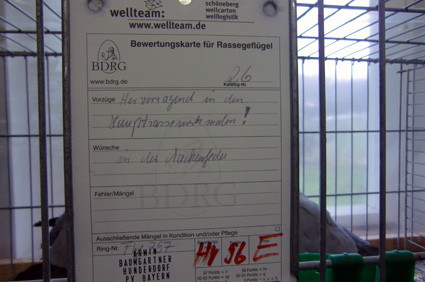 wellteam:
schöneberg
wellcarton
welllogistik
www.wellteam.de
BDRG
Bewertungskarte für Rassegeflügel
www.bdrg.de
26
Käfig-Nr.
Vorzüge
Hervorragend in den
Hauptrassemerkmalen!
Wünsche
in der
BDRG
Fehler/Mängel
Ausschließende Mängel in Kondition und/oder Pflege
Ring-Nr.
BAUMGARTNER
HUNDERDORF
PV BAYERN
Hv 96 E